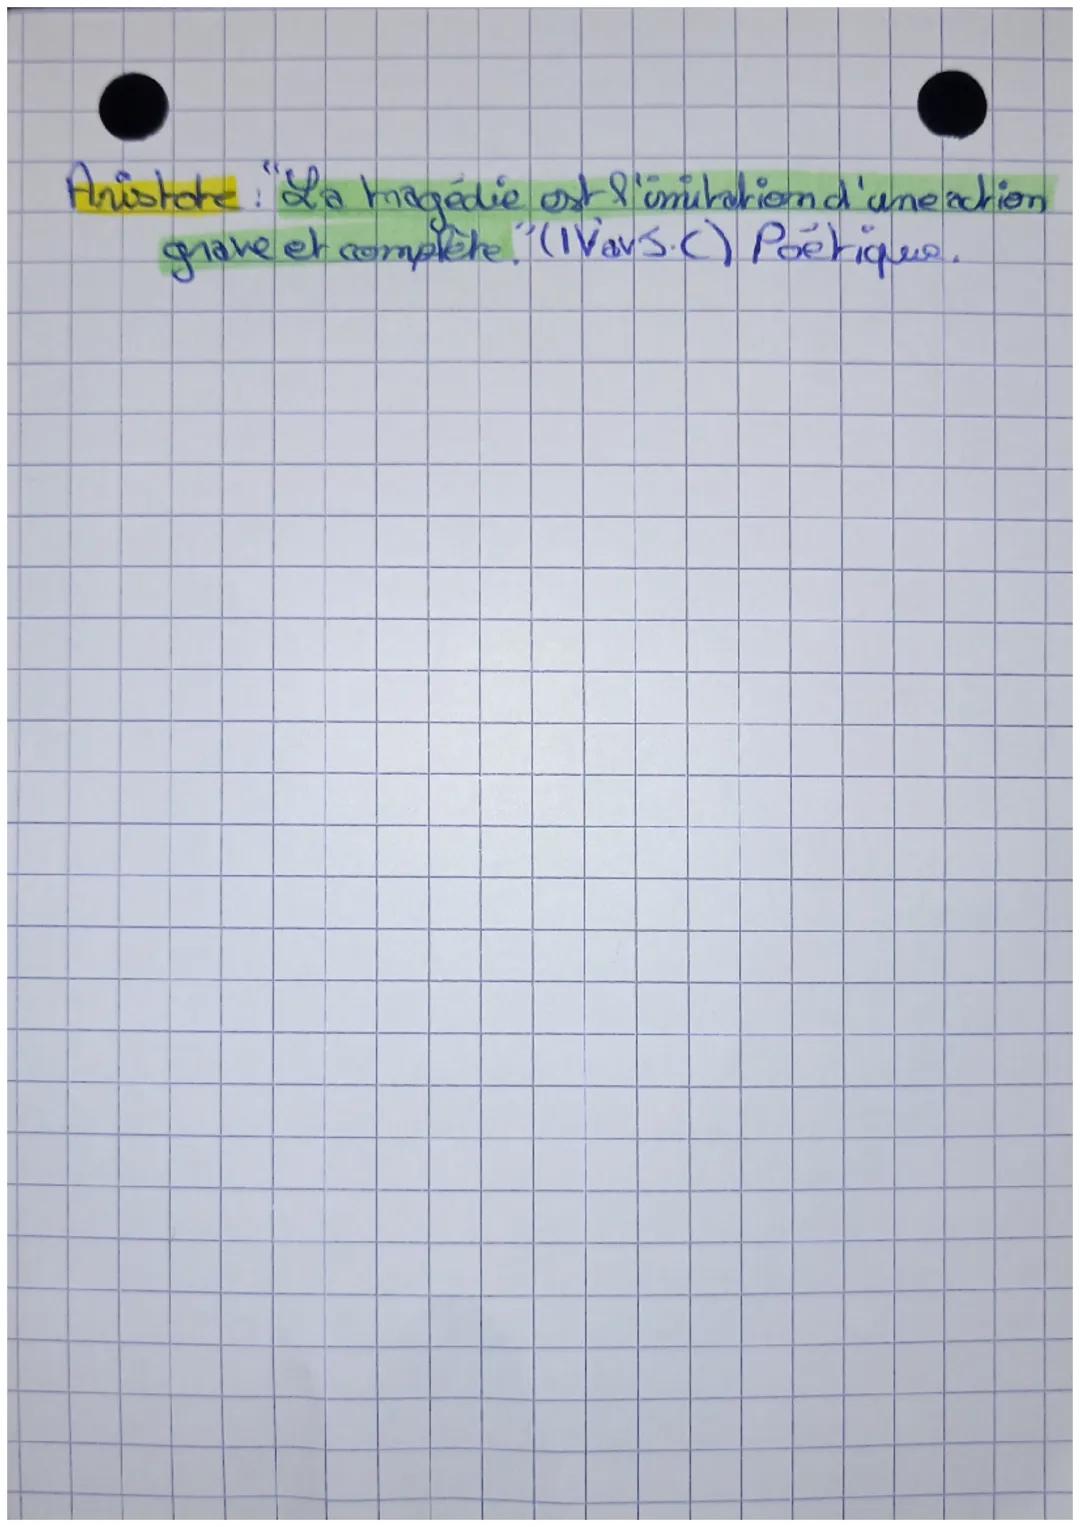 Aristote : "La tragédie est l'imitation d'une action
grave et complète." (IV av J.C) Poétique.